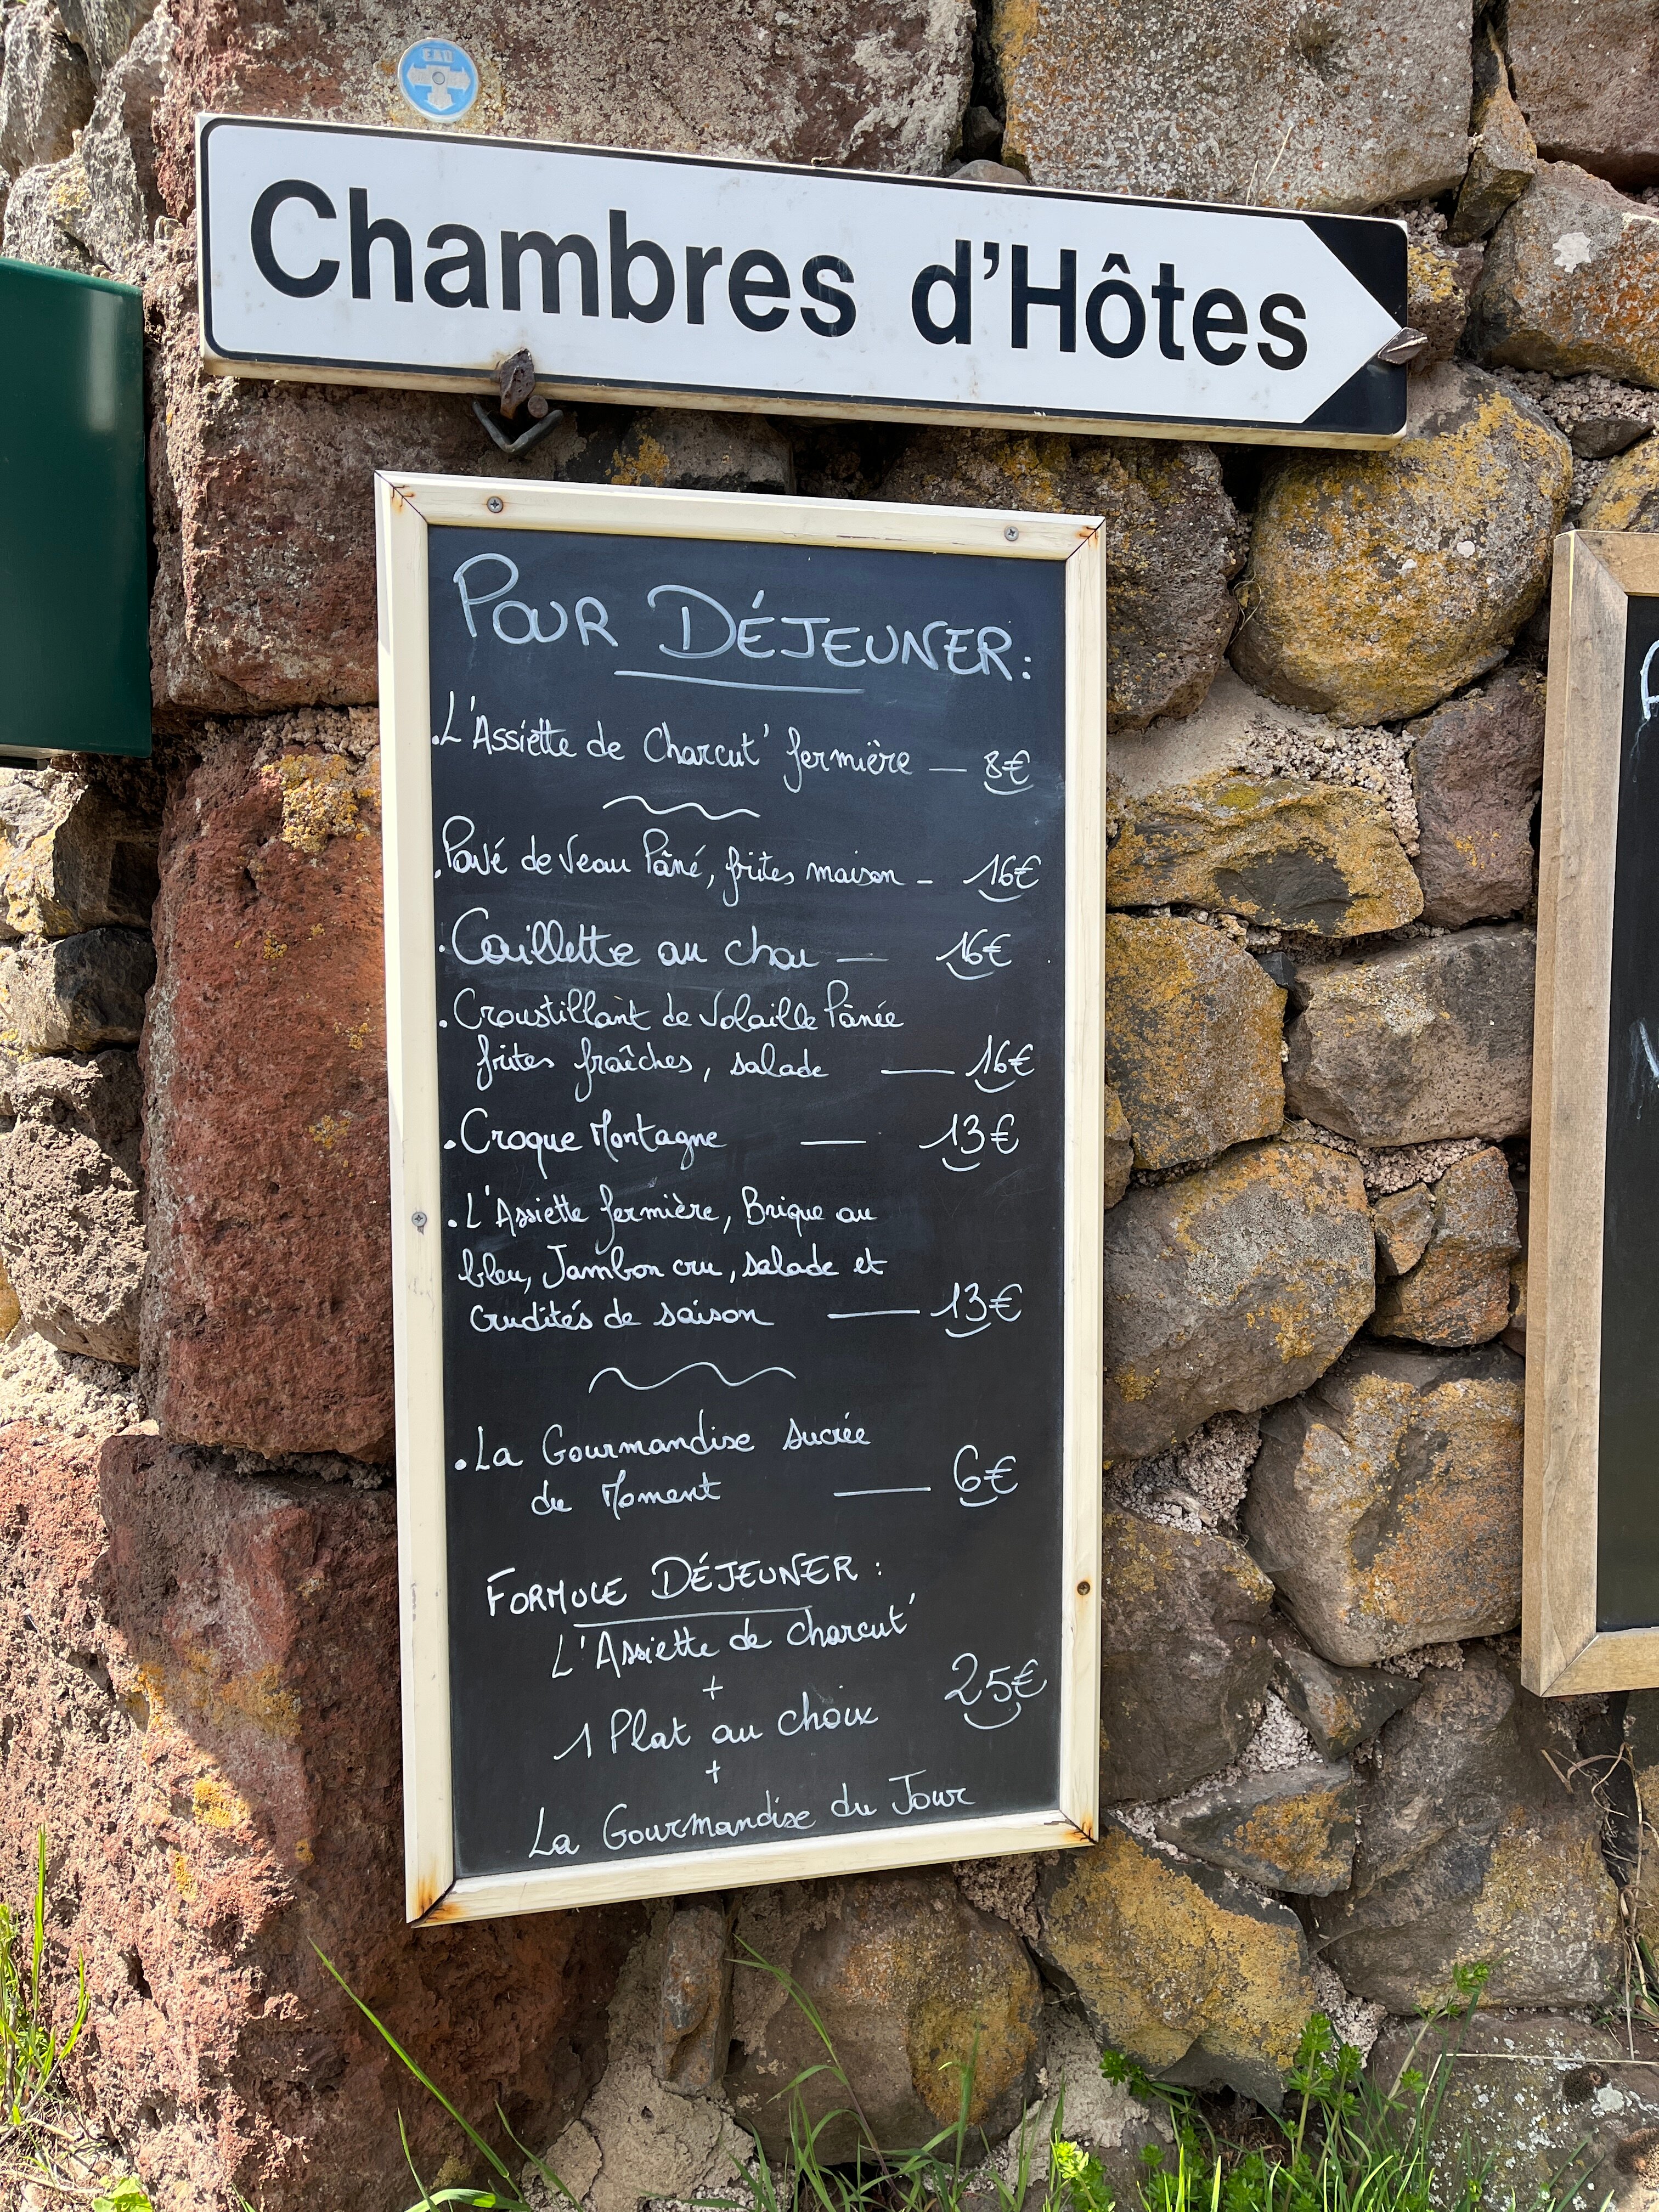 EAU
Chambres d'Hôtes
POUR DÉJEUNER:
.L'Assiette de Charcut' fermière — 8€
.Pavé de Veau Pâné, frites maison - 16€
.Caillette au chou — 16€
.Croustillant de Volaille Pânée
frites fraîches, salade — 16€
.Croque Montagne — 13€
.L'Assiette fermière, Brique au
bleu, Jambon cru, salade et
crudités de saison — 13€
.La Gourmandise sucrée
du Moment — 6€
FORMULE DÉJEUNER :
L'Assiette de charcut'
+
1 Plat au choix 25€
+
La Gourmandise du Jour